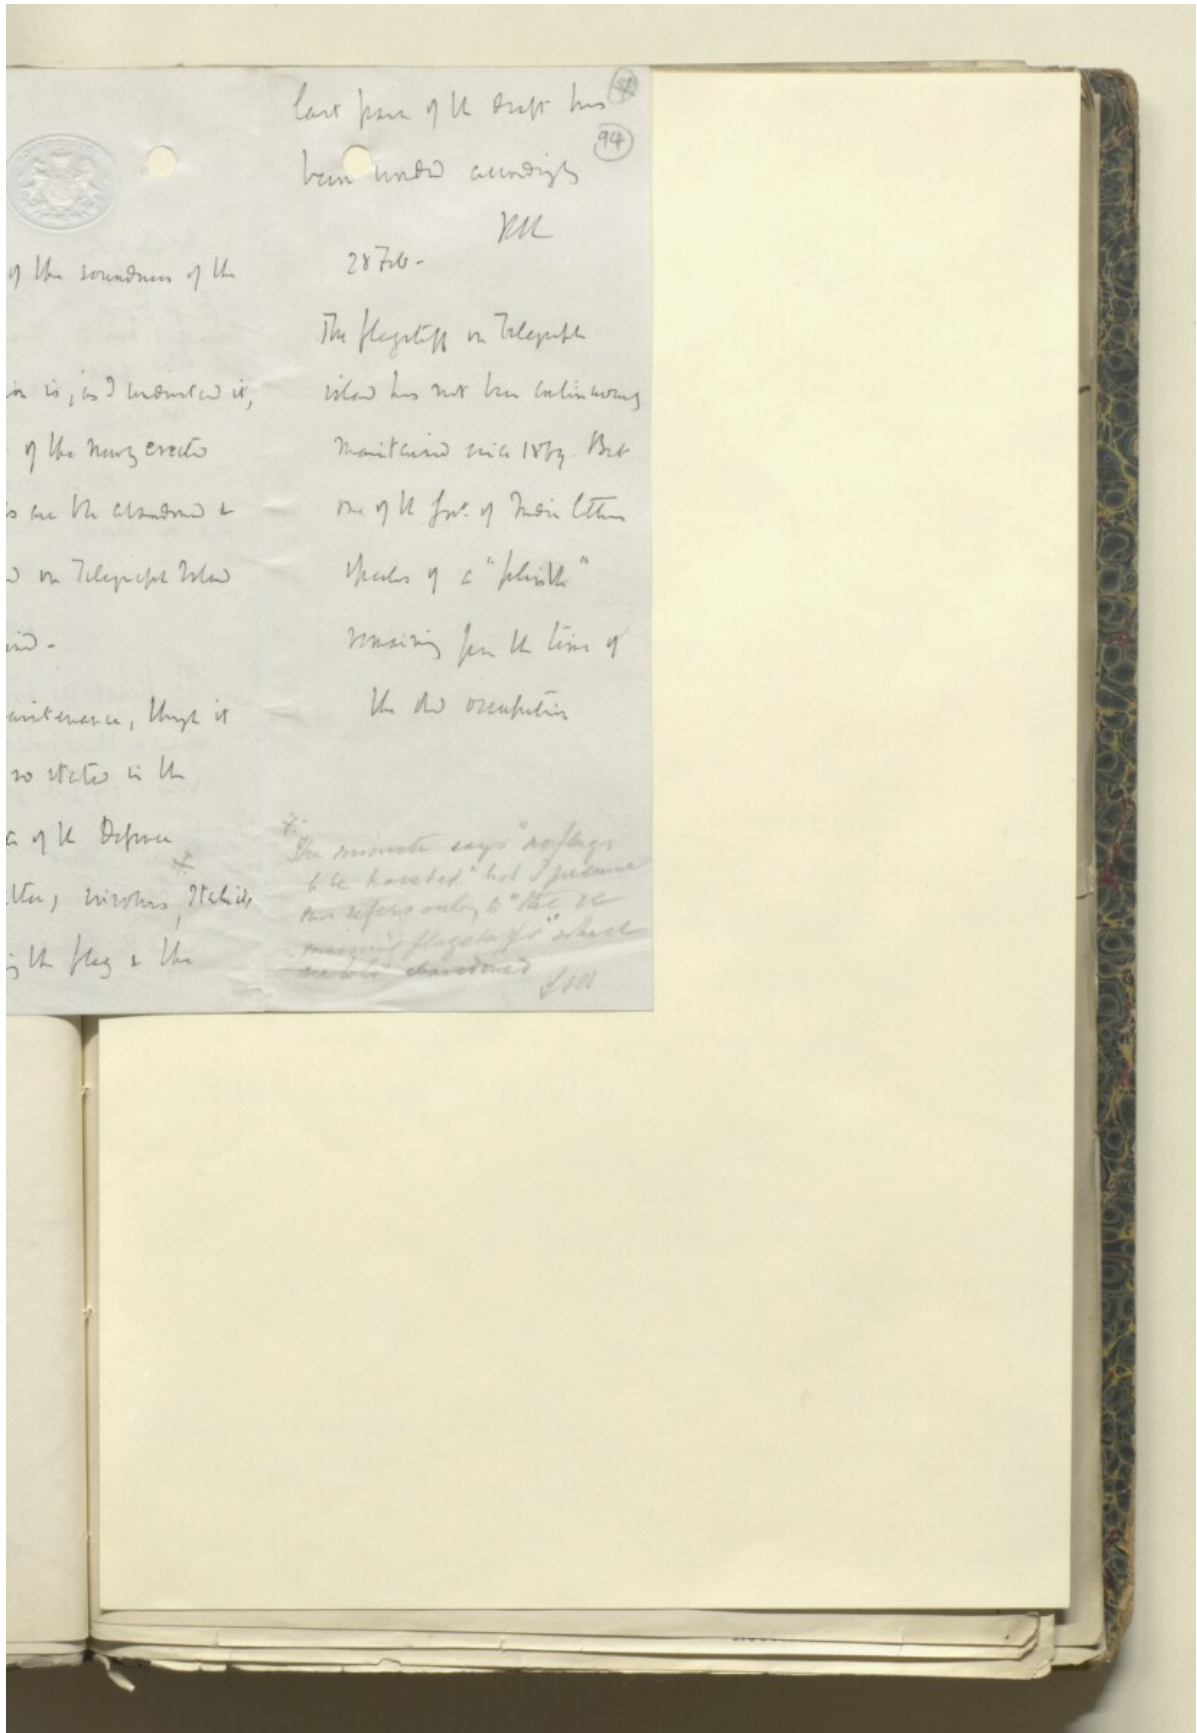 of the soundness of the
is, as I understand it,
of the newly erected
are the abandoned &
on Telegraph Island
maintenance, though it
so stated in the
of the Defence
involves
the flag & the
94
last part of the draft has
been worded accordingly
28 Feb-
The flagstaff on Telegraph
island has not been continuously
maintained since 1869. But
one of the Govt. of India letters
speaks of a "plinth"
remaining from the time of
the old occupation
The minute says "no flags
to be hoisted" but I presume
this refers only to "the re
maining flagstaffs" which
are to be abandoned